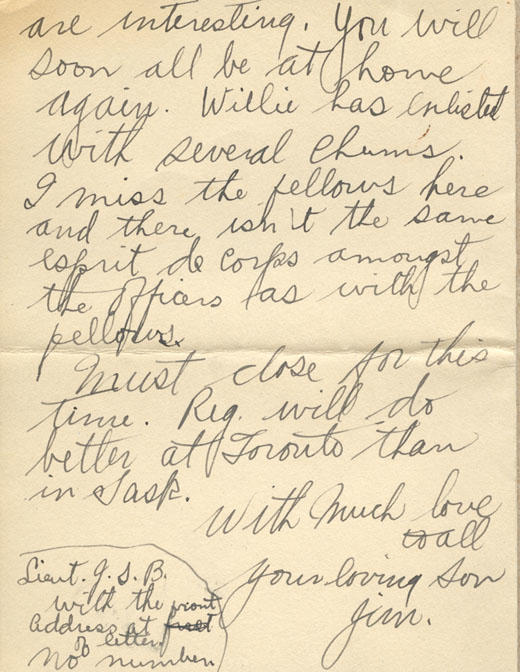 are interesting. You will
soon all be at home
again. Willie has enlisted
with several chums.
I miss the fellows here
and there isn't the same
esprit de corps amongst
the officers as with the
fellows.
Must close for this
time. Reg. will do
better at Toronto than
in Sask.
With much love
to all
Your loving son
Jim.
Lieut. J. S. B.
with the
address at front
of letter
No number